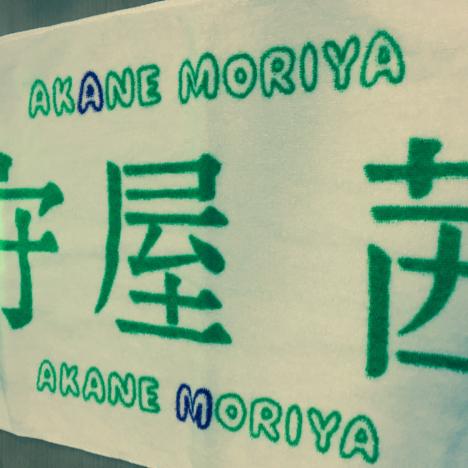 AKANE MORIYA
守屋 茜
AKANE MORIYA